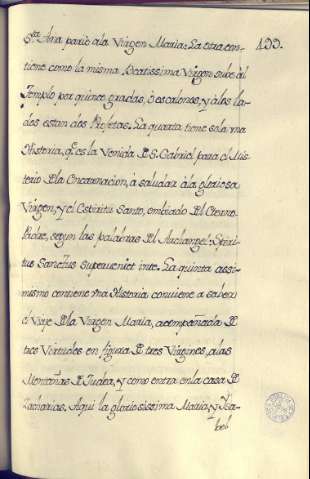 Sta. Ana pario à la Virgen Maria. La otra con- 133.
tiene como la misma Beatissima Virgen sube àl
Templo por quince gradas, ò escalones, y à los la-
dos estàn dos Profetas. La quarta tiene sola vna
Historia, q̃ es la Venida D S. Gabriel para el Mis-
terio D la Encarnacion, à saludar à la gloriosa
Virgen, y el Espiritu Santo, embiado D el Eterno
Padre, segun las palabras D el Archangel: Spiri-
tus Sanctus superveniet in te. La quinta assi-
mismo contiene vna Historia conviene a saber:
el Viage D la Virgen Maria, acompañada D
tres Virtudes en figura D tres Virgenes, a las
Montañas D Judea, y como entra en la casa D
Zacharias. Aqui la gloriosissima Maria, y Isa-
bel